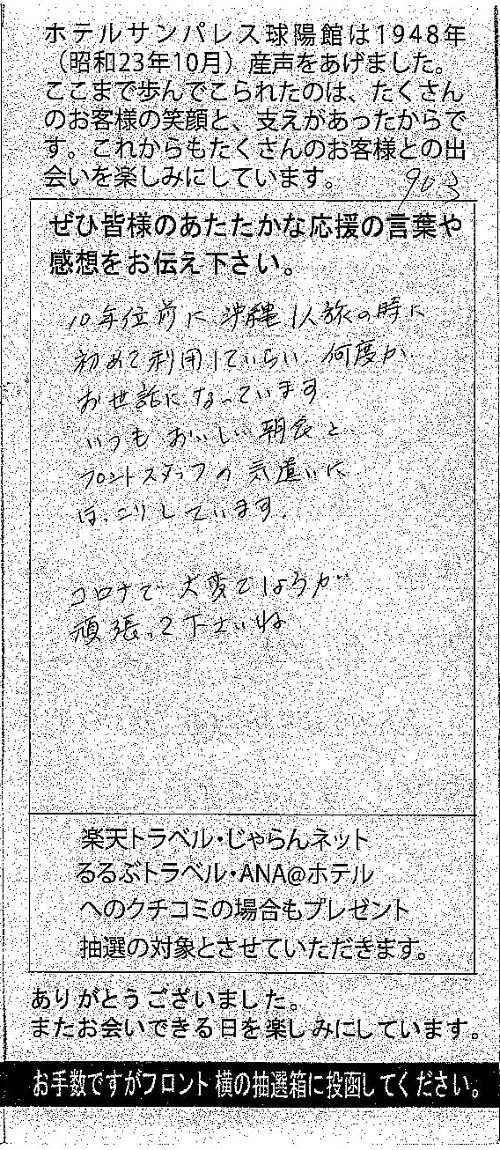 ホテルサンパレス球陽館は1948年
（昭和23年10月）産声をあげました。
ここまで歩んでこられたのは、たくさん
のお客様の笑顔と、支えがあったからで
す。これからもたくさんのお客様との出
会いを楽しみにしています。
903
ぜひ皆様のあたたかな応援の言葉や
感想をお伝え下さい。
10年位前に沖縄1人旅の時に
初めて利用していらい何度か
お世話になっています.
いつもおいしい朝食と
フロントスタッフの気遣いに
ほっこりしています.
コロナで大変でしょうが
頑張って下さいね
楽天トラベル・じゃらんネット
るるぶトラベル・ANA@ホテル
へのクチコミの場合もプレゼント
抽選の対象とさせていただきます。
ありがとうございました。
またお会いできる日を楽しみにしています。
お手数ですがフロント横の抽選箱に投函してください。